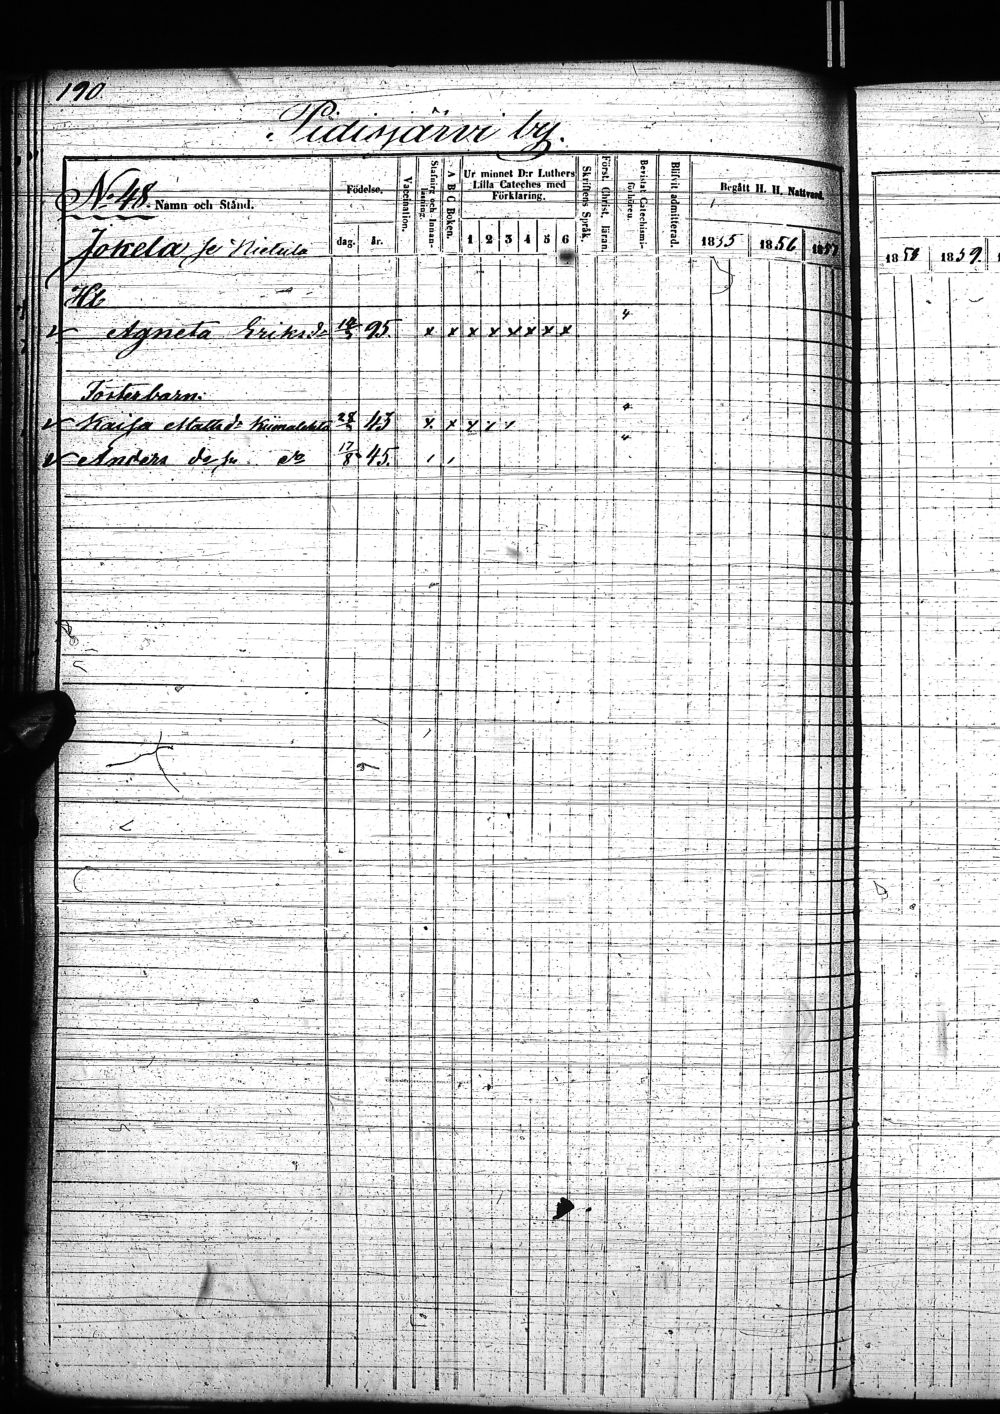 190.
Pidisjärvi by.
No 48. Namn och Stånd.
Födelse,
dag. år.
Vaccination.
Stafning och Innanläsning.
A B C Boken.
Ur minnet D:r Luthers Lilla Cateches med Förklaring.
1 2 3 4 5 6
Skriftens Språk.
Först. Christ. läran.
Bevistat Catechismiförhören.
Blifvit admitterad.
Begått H. H. Nattvard.
1855 1856 1857
1858 1859. 1
Jokela se
Hb
Agneta Eriksdr 95. x x x x x x x x
Fosterbarn.
Kaisa Mattsdr Kiimalehto 28 43 x x x
Anders 17/8 45.